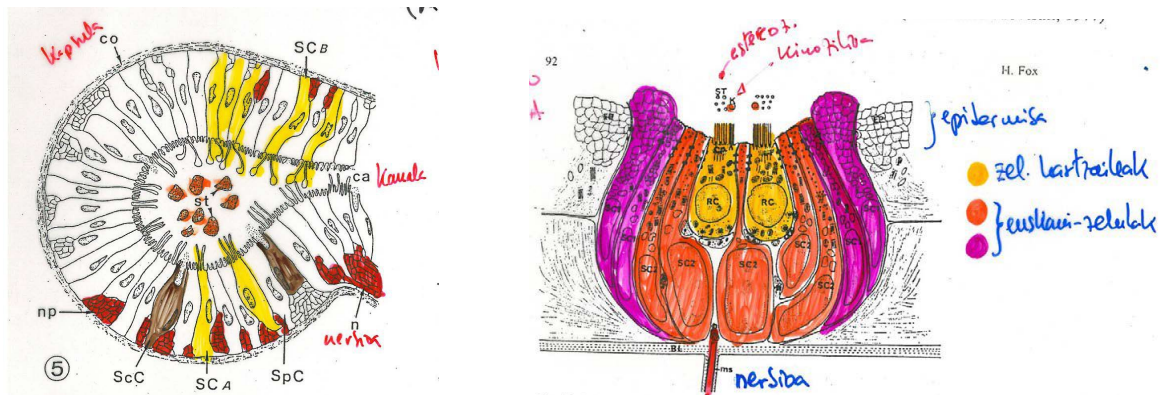 Kapsula
co
SCB
ca
Kanala
st
np
n
nerbioa
ScC
SCA
SpC
5
92
H. Fox
estereoz.
Kinozilioa
ST
K
epidermisa
zel. hartzaileak
euskarri-zelulak
RC
RC
SC2
SC2
SC2
SC2
SC2
SC1
BL
ms
nerbioa